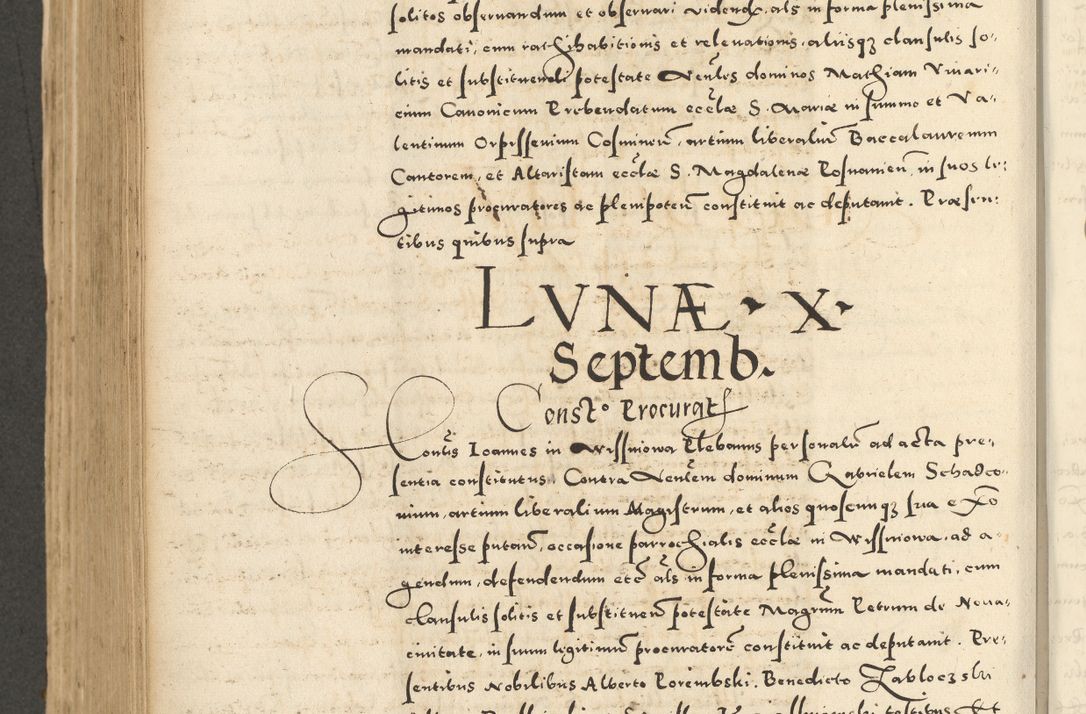 solitos observandum et observari videndum, als in forma plenissima
mandati, cum rathihabitionis et relevationis, aliisqꝫ clausulis so-
litis et substituendi potestate Venles dominos Mathiam Vivari-
cium Canonicum Prebendatum ecclæ S. Mariæ in summo et Va-
lentinum Orpissevium Cosminen̄, artium liberaliū Baccalaureum
Cantorem, et Altaristam ecclæ S. Magdalenæ Posnanien̄, in suos le-
gitimos procuratores ac plenipoten̄ constituit ac deputavit. Præsen-
tibus quibus supra
LVNÆ · X ·
Septemb.
Const° Procurat
Honlis Ioannes in Wissniowa Plebanus personalr̄ ad acta pre-
sentia constitutus. Contra Venlem dominum Gabrielem Schadco-
vium, artium liberalium Magistrum, et alios quoscunqꝫ sua e Xō
interesse putan̄, occasione parrochialis ecclæ in Wissniowa, ad a-
gendum, defendendum etc̄ als in forma plenissima mandati, cum
clausulis solitis et substituen̄ potestate Magrum Petrum de Nova-
civitate, in suum legitimū procuratorē constituit ac deputavit. Pre-
sentibus Nobilibus Alberto Porembski, Benedicto Zabloczski